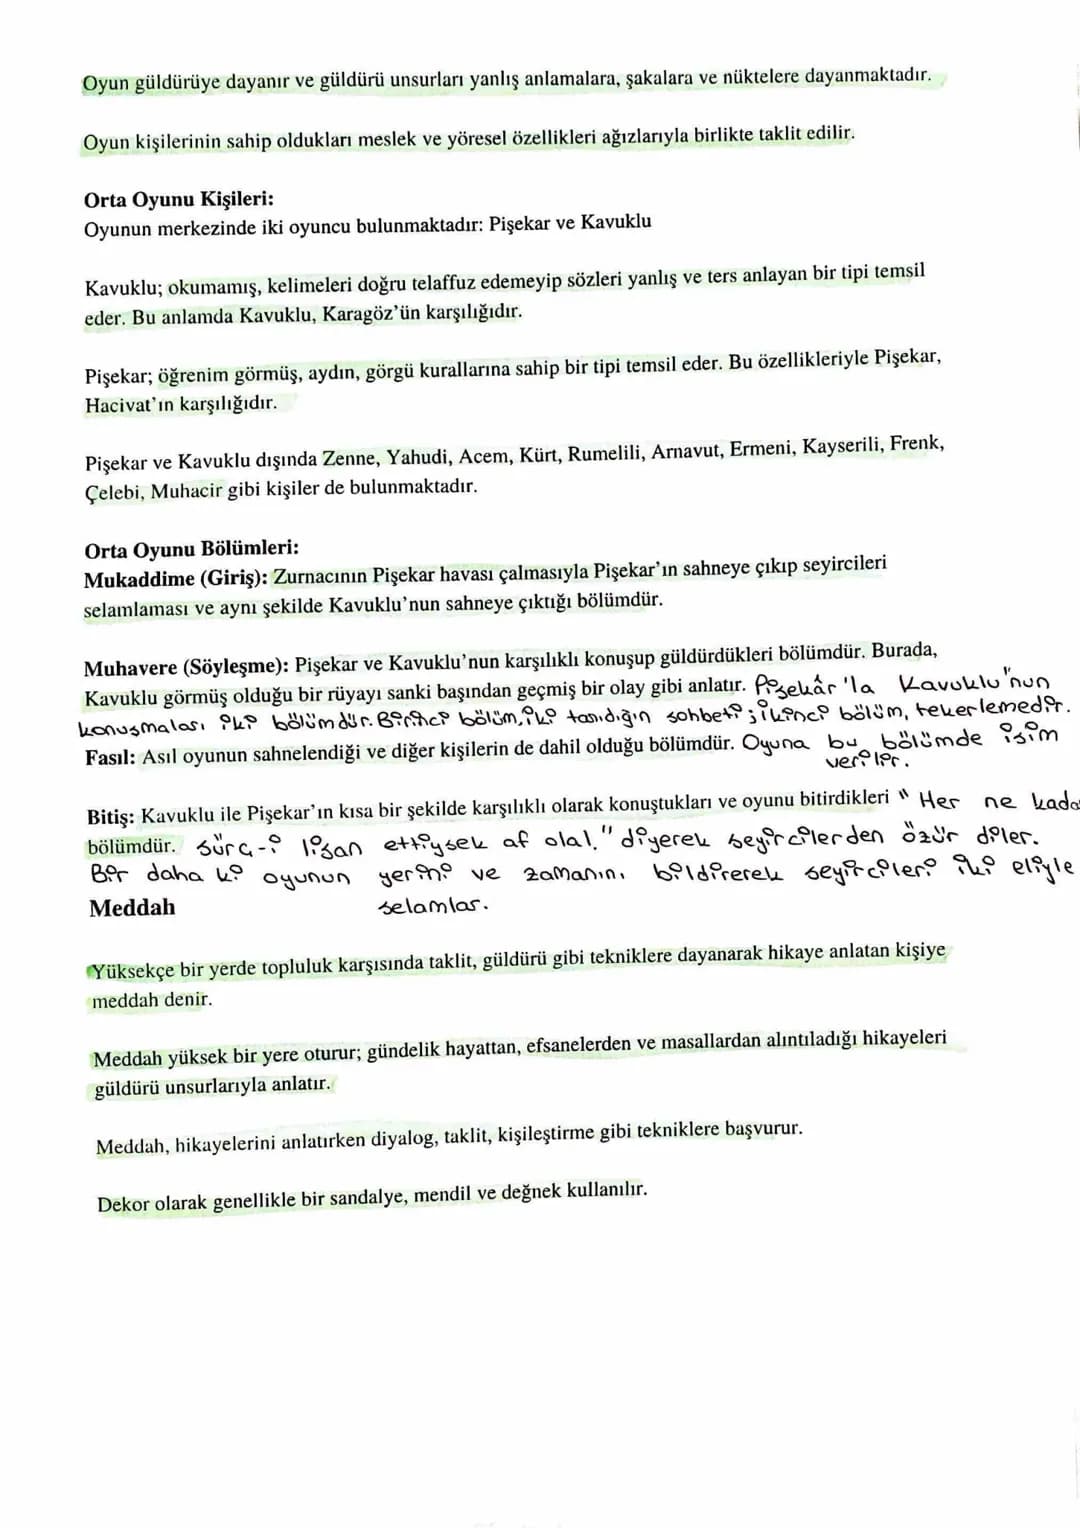 Oyun güldürüye dayanır ve güldürü unsurları yanlış anlamalara, şakalara ve nüktelere dayanmaktadır.
Oyun kişilerinin sahip oldukları meslek ve yöresel özellikleri ağızlarıyla birlikte taklit edilir.
Orta Oyunu Kişileri:
Oyunun merkezinde iki oyuncu bulunmaktadır: Pişekar ve Kavuklu
Kavuklu; okumamış, kelimeleri doğru telaffuz edemeyip sözleri yanlış ve ters anlayan bir tipi temsil
eder. Bu anlamda Kavuklu, Karagöz'ün karşılığıdır.
Pişekar; öğrenim görmüş, aydın, görgü kurallarına sahip bir tipi temsil eder. Bu özellikleriyle Pişekar,
Hacivat'ın karşılığıdır.
Pişekar ve Kavuklu dışında Zenne, Yahudi, Acem, Kürt, Rumelili, Arnavut, Ermeni, Kayserili, Frenk,
Çelebi, Muhacir gibi kişiler de bulunmaktadır.
Orta Oyunu Bölümleri:
Mukaddime (Giriş): Zurnacının Pişekar havası çalmasıyla Pişekar'ın sahneye çıkıp seyircileri
selamlaması ve aynı şekilde Kavuklu'nun sahneye çıktığı bölümdür.
Muhavere (Söyleşme): Pişekar ve Kavuklu'nun karşılıklı konuşup güldürdükleri bölümdür. Burada,
Kavuklu görmüş olduğu bir rüyayı sanki başından geçmiş bir olay gibi anlatır. Pişekâr'la Kavuklu'nun
konuşmaları iki bölümdür. Birinci bölüm, iki tanıdığın sohbeti; ikinci bölüm, tekerlemedir.
Fasıl: Asıl oyunun sahnelendiği ve diğer kişilerin de dahil olduğu bölümdür. Oyuna bu bölümde isim
verilir.
Bitiş: Kavuklu ile Pişekar'ın kısa bir şekilde karşılıklı olarak konuştukları ve oyunu bitirdikleri " Her ne kada
bölümdür. sürc-i lisan ettiysek af ola!." diyerek seyircilerden özür diler.
Bir daha ki oyunun yerini ve zamanını bildirerek seyircileri iki eliyle
selamlar.
Meddah
Yüksekçe bir yerde topluluk karşısında taklit, güldürü gibi tekniklere dayanarak hikaye anlatan kişiye
meddah denir.
Meddah yüksek bir yere oturur; gündelik hayattan, efsanelerden ve masallardan alıntıladığı hikayeleri
güldürü unsurlarıyla anlatır.
Meddah, hikayelerini anlatırken diyalog, taklit, kişileştirme gibi tekniklere başvurur.
Dekor olarak genellikle bir sandalye, mendil ve değnek kullanılır.